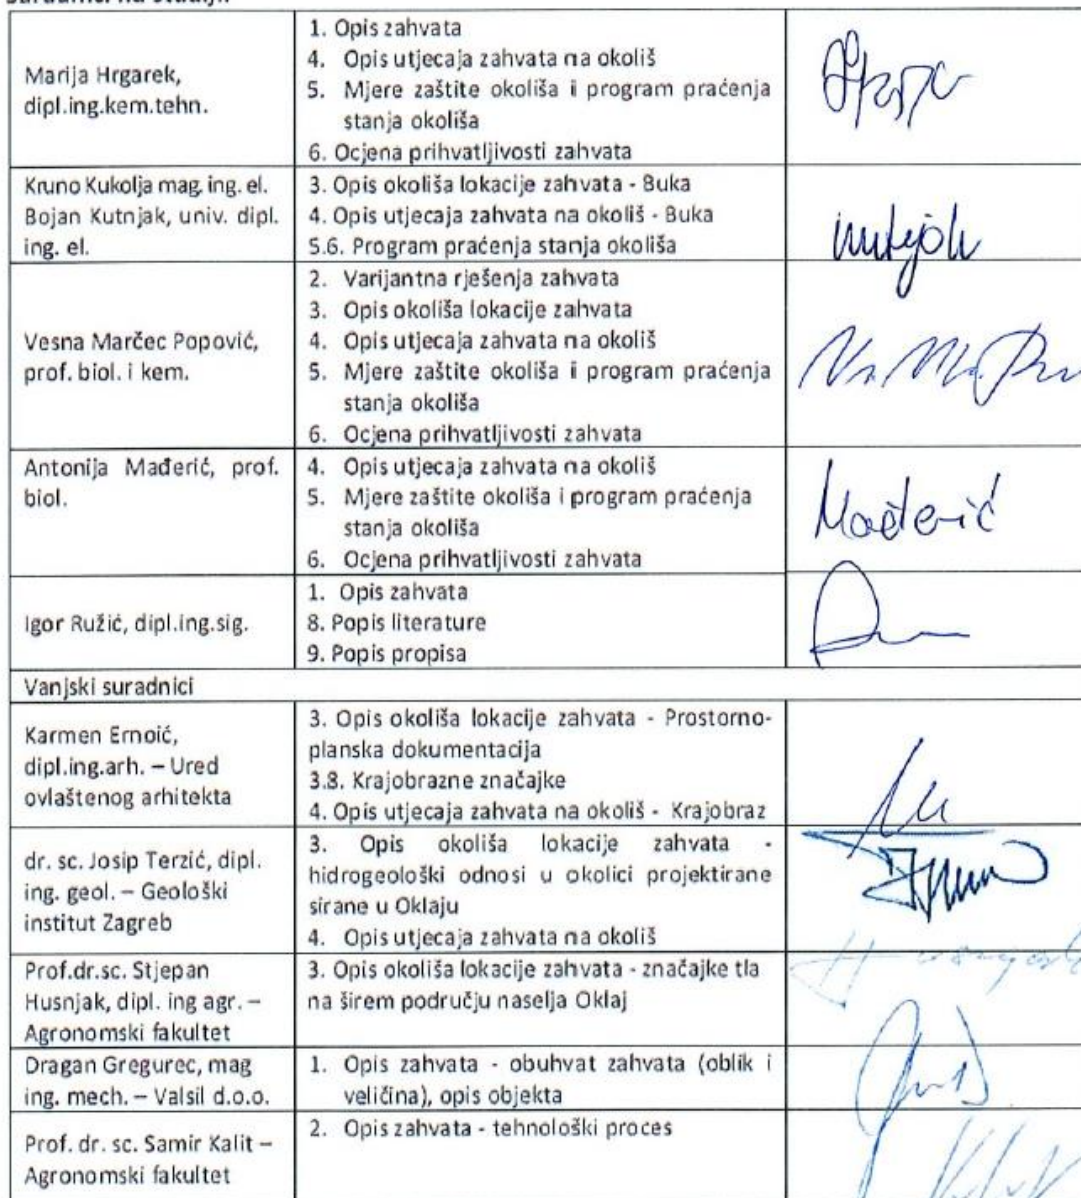 Marija Hrgarek,
dipl.ing.kem.tehn.
1. Opis zahvata
4. Opis utjecaja zahvata na okoliš
5. Mjere zaštite okoliša i program praćenja
stanja okoliša
6. Ocjena prihvatljivosti zahvata
Kruno Kukolja mag. ing. el.
Bojan Kutnjak, univ. dipl.
ing. el.
3. Opis okoliša lokacije zahvata - Buka
4. Opis utjecaja zahvata na okoliš - Buka
5.6. Program praćenja stanja okoliša
Vesna Marčec Popović,
prof. biol. i kem.
2. Varijantna rješenja zahvata
3. Opis okoliša lokacije zahvata
4. Opis utjecaja zahvata na okoliš
5. Mjere zaštite okoliša i program praćenja
stanja okoliša
6. Ocjena prihvatljivosti zahvata
Antonija Mađerić, prof.
biol.
4. Opis utjecaja zahvata na okoliš
5. Mjere zaštite okoliša i program praćenja
stanja okoliša
6. Ocjena prihvatljivosti zahvata
Mađerić
Igor Ružić, dipl.ing.sig.
1. Opis zahvata
8. Popis literature
9. Popis propisa
Vanjski suradnici
Karmen Ernoić,
dipl.ing.arh. – Ured
ovlaštenog arhitekta
3. Opis okoliša lokacije zahvata - Prostorno-
planska dokumentacija
3.8. Krajobrazne značajke
4. Opis utjecaja zahvata na okoliš - Krajobraz
dr. sc. Josip Terzić, dipl.
ing. geol. – Geološki
institut Zagreb
3. Opis okoliša lokacije zahvata -
hidrogeološki odnosi u okolici projektirane
sirane u Oklaju
4. Opis utjecaja zahvata na okoliš
Prof.dr.sc. Stjepan
Husnjak, dipl. ing agr. –
Agronomski fakultet
3. Opis okoliša lokacije zahvata - značajke tla
na širem području naselja Oklaj
Dragan Gregurec, mag
ing. mech. – Valsil d.o.o.
1. Opis zahvata - obuhvat zahvata (oblik i
veličina), opis objekta
Prof. dr. sc. Samir Kalit –
Agronomski fakultet
2. Opis zahvata - tehnološki proces